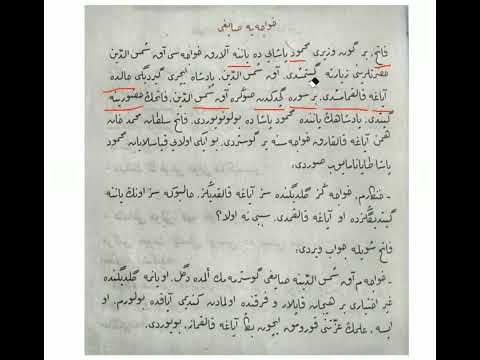 خواجه‌یه صایغی
فاتح، بر گون وزیری محمود پاشایی ده یاننه آلارق خواجه‌سی آق شمس الدّین
حضرتلرینی زیارته گیتمشدی. آق شمس الدّین، پادشاه ایچری گیردیگی حالده
آیاغه قالقمامشدی. بر سوره گچدکدن صوڭره آق شمس الدّین، فاتحڭ حضورینه
گیتدی. پادشاهڭ یاننده محمود پاشا ده بولونویوردی. فاتح سلطان محمد خان
همن آیاغه قالقارق خواجه سنه یر گوستردی. بو ایکی اولایی قیاسلایان محمود
پاشا طایانامایوب صوردی:
- خنکارم، خواجه ڭز گلدیگنده سز آیاغه قالقدیڭز. حالبوکه سز اونڭ یاننه
گیتدیگڭزده او آیاغه قالقمدی. سببی نه اولا؟
فاتح شویله جواب ویردی:
- خواجه م آق شمس الدّینه صایغی گوسترمه مك المده دگل. او یانمه گلدیگنده
غیر اختیاری بر هیجان قاپلار و فرقنده اولمادن کندیمی آیاقده بولورم. او
ایسه، علمڭ عزّتنی قورومق ایچون بڭا آیاغه قالقماز، بویوردی.